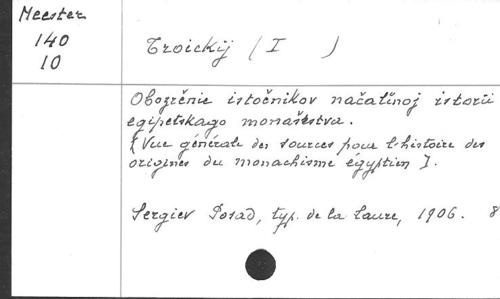 Meester
140
10
Troickij (I )
Obozrěnie istočnikov načalĭnoj istorii
egipetskago monašestva.
[Vue générale des sources pour l'histoire des
origines du monachisme égyptien].
Sergiev Posad, typ. de la Laure, 1906. 8